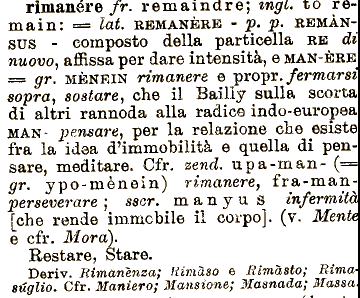 rimanére fr. remaindre; ingl. to re-
main: = lat. REMANÈRE - p. p. REMÀN-
SUS - composto della particella RE di
nuovo, affissa per dare intensità, e MAN-ÈRE
= gr. MÈNEIN rimanere e propr. fermarsi
sopra, sostare, che il Bailly sulla scorta
di altri rannoda alla radice indo-europea
MAN- pensare, per la relazione che esiste
fra la idea d'immobilità e quella di pen-
sare, meditare. Cfr. zend. upa-man- (=
gr. ypo-mènein) rimanere, fra-man-
perseverare; sscr. manyus infermità
[che rende immobile il corpo]. (v. Mente
e cfr. Mora).
Restare, Stare.
Deriv. Rimanènza; Rimàso e Rimàsto; Rima-
súglio. Cfr. Maniero; Mansione; Masnada; Massa